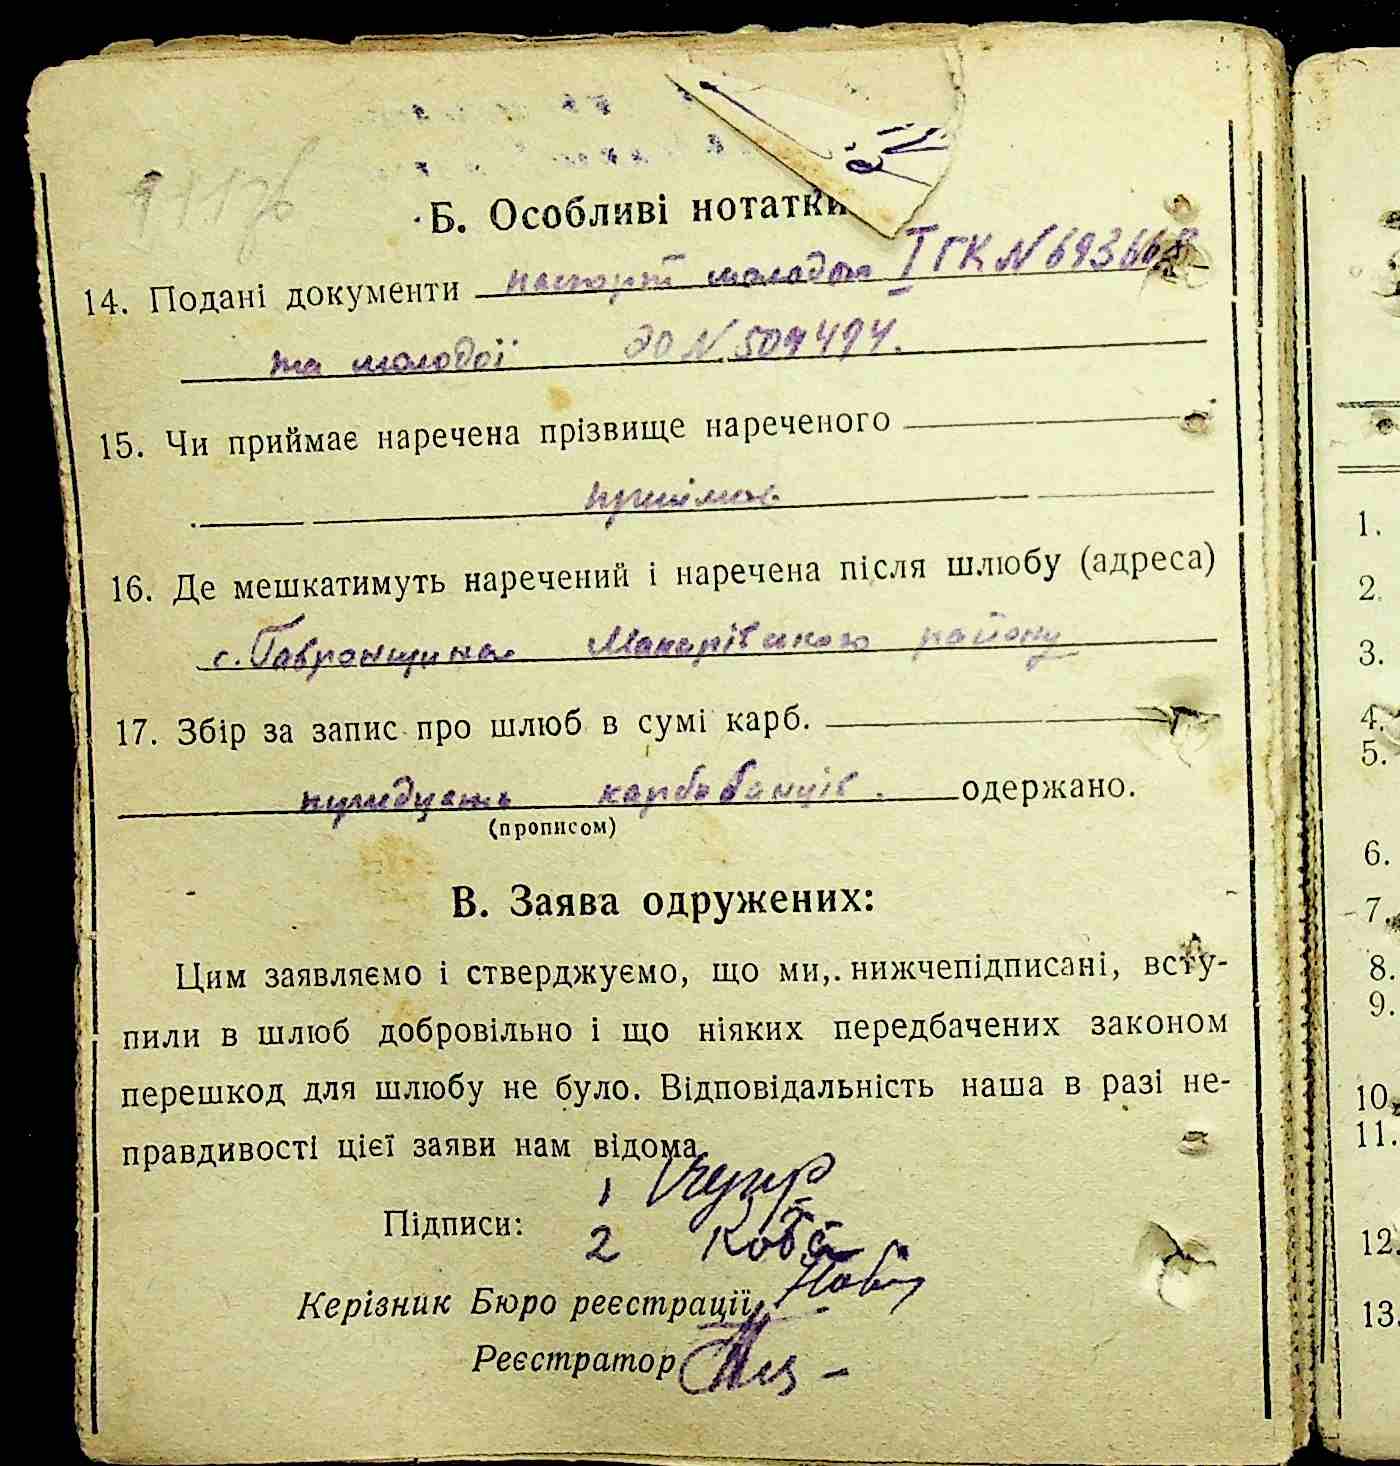 Б. Особливі нотатки
14. Подані документи паспорт молодого І ГК N 693668
та молодої ДО N 509494.
15. Чи приймає наречена прізвище нареченого
приймає
16. Де мешкатимуть наречений і наречена після шлюбу (адреса)
с. Гавронщина Макарівського району
17. Збір за запис про шлюб в сумі карб.
карбованців. одержано.
(прописом)
В. Заява одружених:
Цим заявляємо і стверджуємо, що ми, нижчепідписані, всту-
пили в шлюб добровільно і що ніяких передбачених законом
перешкод для шлюбу не було. Відповідальність наша в разі не-
правдивості цієї заяви нам відома
1
Підписи:
2
Керізник Бюро реєстрації
Реєстратор
1.
2.
3.
4.
5.
6.
7.
8.
9.
10.
11.
12.
13.